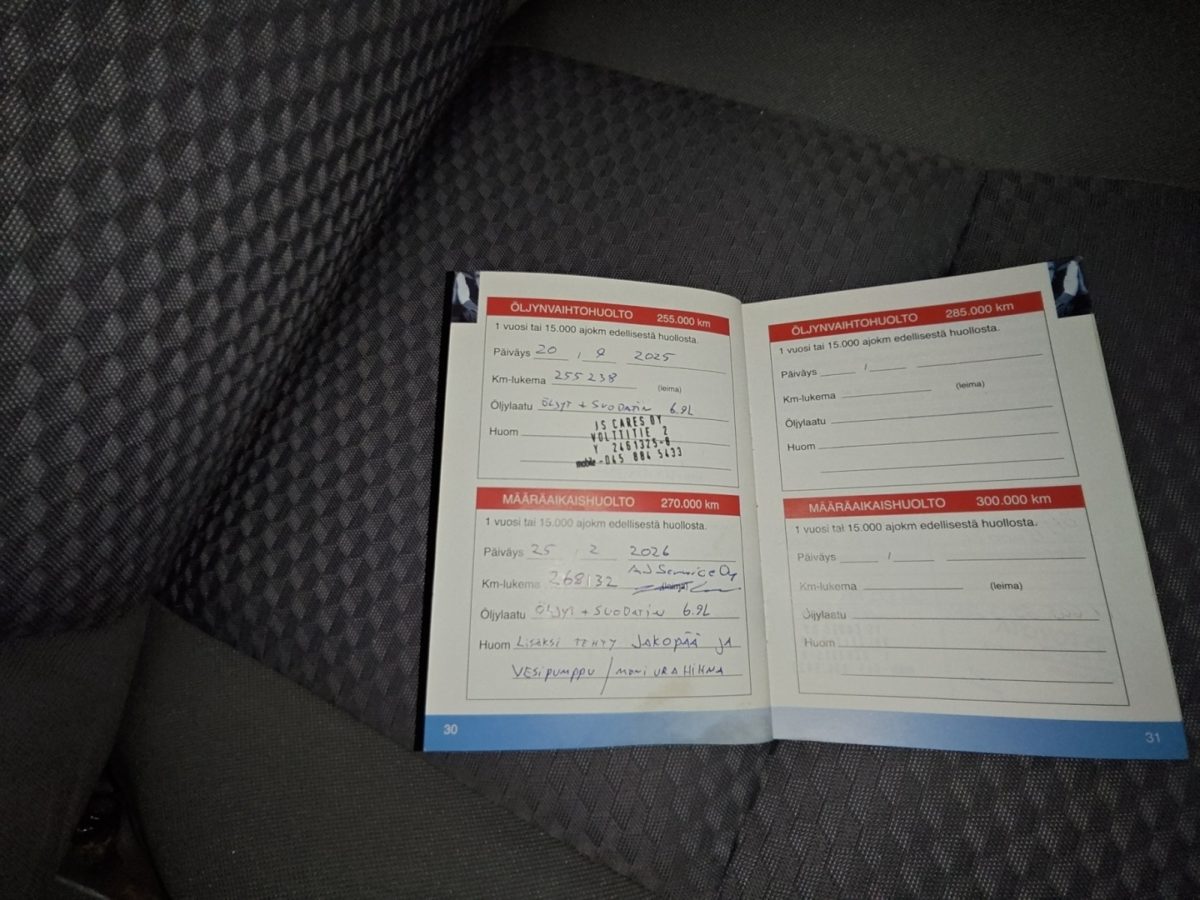 ÖLJYNVAIHTOHUOLTO 255.000 km
1 vuosi tai 15.000 ajokm edellisestä huollosta.
Päiväys 20 , 9 2025
Km-lukema 255238 (leima)
Öljylaatu ÖLJYT + SUODATIN 6.9L
Huom
IS CARES OY
VOLTTITIE 2
Y 2461325-8
mobile -045 884 5433
MÄÄRÄAIKAISHUOLTO 270.000 km
1 vuosi tai 15.000 ajokm edellisestä huollosta.
Päiväys 25 , 2 2026
Km-lukema 268132 AJ Service Oy
(leima)
Öljylaatu ÖLJYT + SUODATIN 6.9L
Huom LISÄKSI TEHTY JAKOPÄÄ JA
VESIPUMPPU / MONIURAHIHNA
30
ÖLJYNVAIHTOHUOLTO 285.000 km
1 vuosi tai 15.000 ajokm edellisestä huollosta.
Päiväys /
Km-lukema (leima)
Öljylaatu
Huom
MÄÄRÄAIKAISHUOLTO 300.000 km
1 vuosi tai 15.000 ajokm edellisestä huollosta.
Päiväys /
Km-lukema (leima)
Öljylaatu
Huom
31